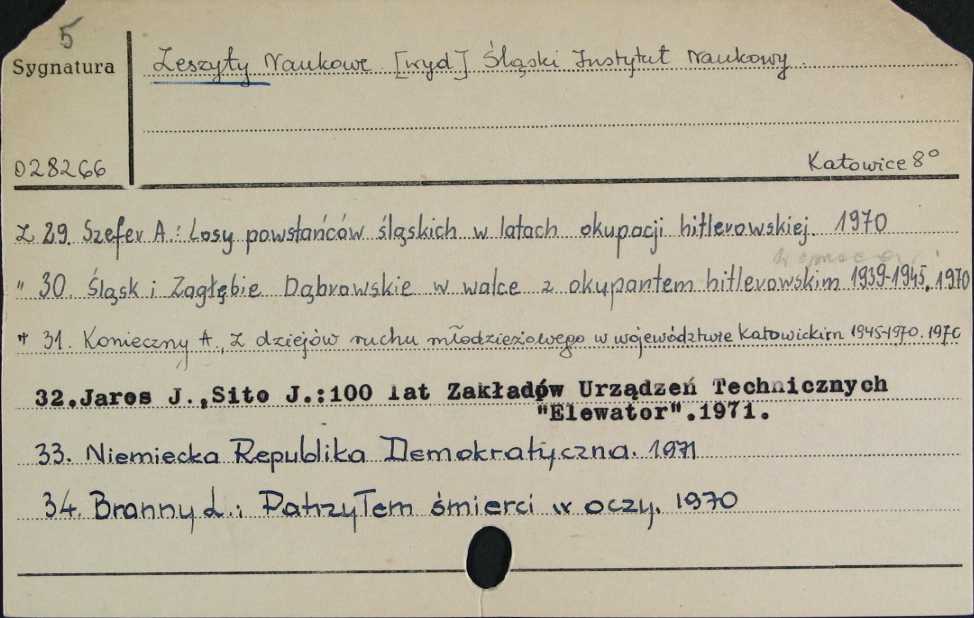 5
Sygnatura
Zeszyty Naukowe [wyd] Śląski Instytut Naukowy.
028266
Katowice 8°
Z 29. Szefer A.: Losy powstańców śląskich w latach okupacji hitlerowskiej. 1970
" 30 Śląsk i Zagłębie Dąbrowskie w walce z okupantem hitlerowskim 1939-1945. 1970
" 31. Konieczny A., Z dziejów ruchu młodzieżowego w województwie Katowickim 1945-1970. 1970
32.Jaros J.,Sito J.:100 lat Zakładów Urządzeń Technicznych
"Elewator".1971.
33. Niemiecka Republika Demokratyczna. 1971
34. Branny L.: Patrzyłem śmierci w oczy. 1970